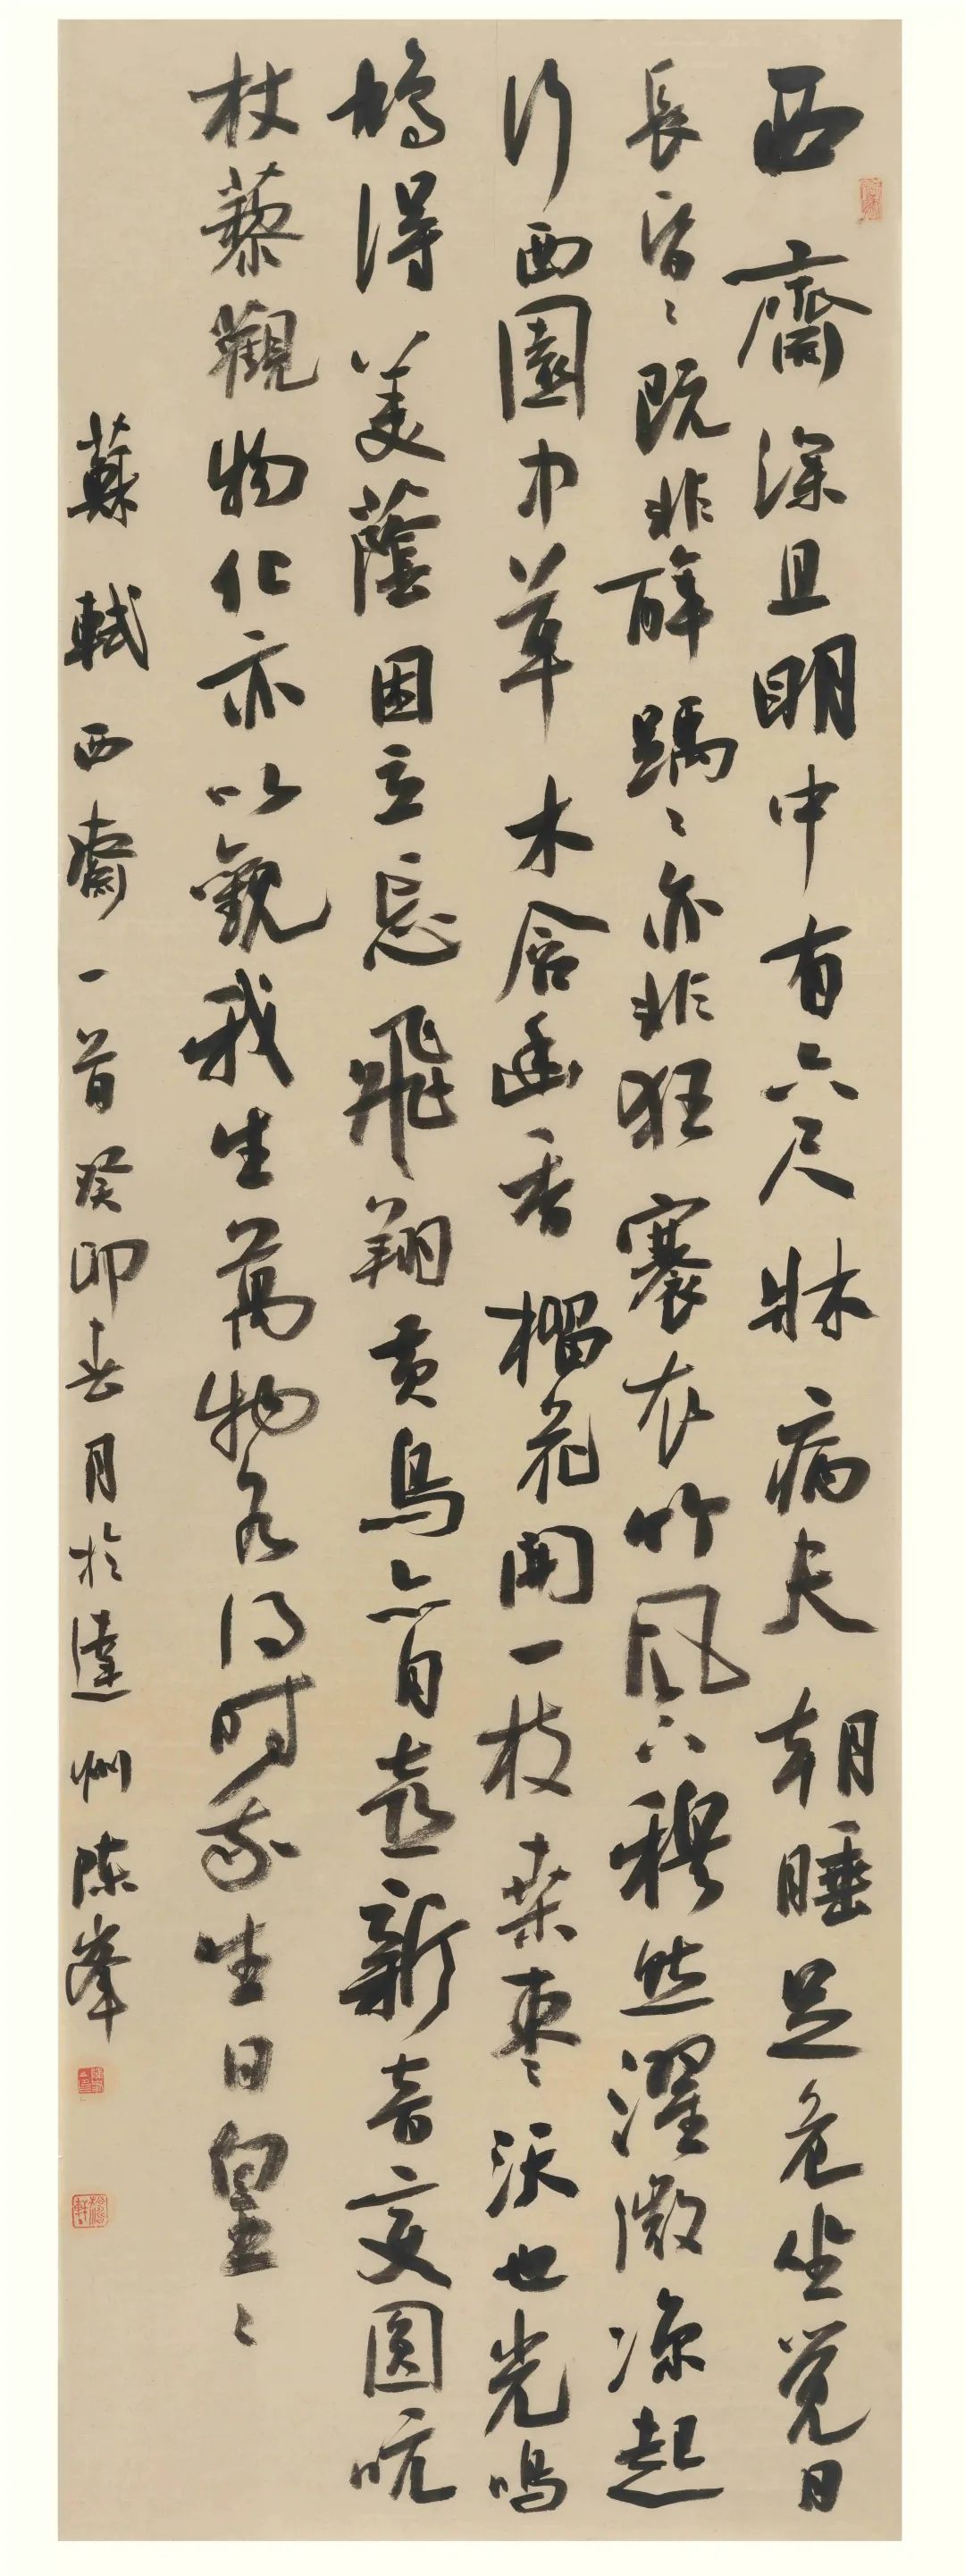 西齋深且明中有六尺牀病夫朝睡足危坐覺日
長昏〻既非醉踽〻亦非狂褰衣竹風下穆然濯微涼起
行西園中草木含幽香榴花開一枝桑棗沃也光鳴
鳩得美蔭困立忘飛翔黃鳥亦自喜新音變圓吭
杖藜觀物化亦以觀我生萬物各得時我生日皇〻
蘇軾西齋一首癸卯春月於達州陳峯